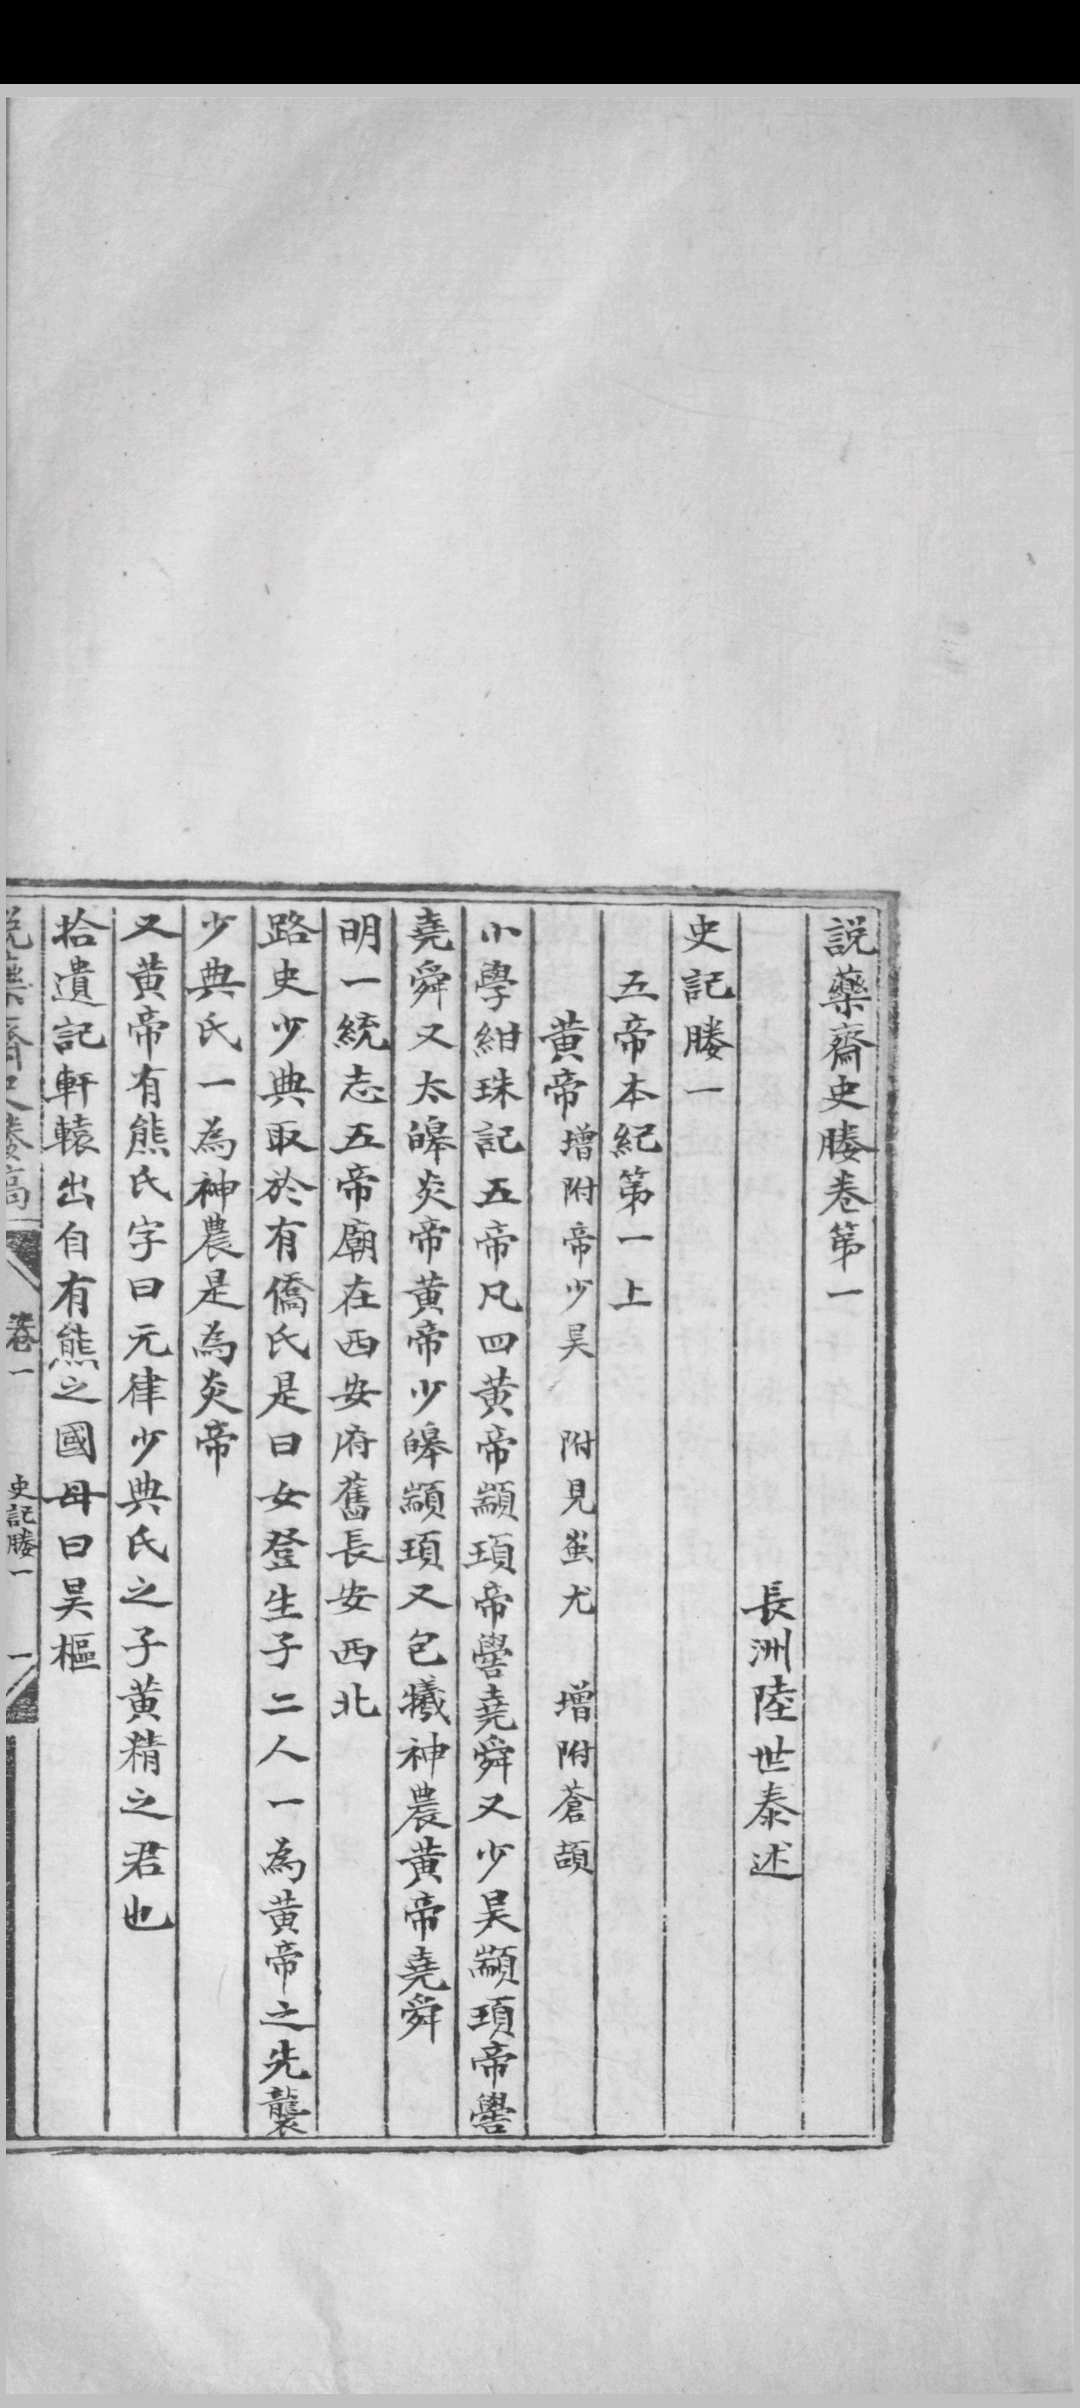 說藥齋史媵卷第一
長洲陸世泰述
史記媵一
五帝本紀第一上
黃帝 增附帝少昊 附見蚩尤 增附蒼頡
小學紺珠記五帝凡四黃帝顓頊帝嚳堯舜又少昊顓頊帝嚳
堯舜又太皥炎帝黃帝少皥顓頊又包犧神農黃帝堯舜
明一統志五帝廟在西安府舊長安西北
路史少典取於有僑氏是曰女登生子二人一為黃帝之先襲
少典氏一為神農是為炎帝
又黃帝有熊氏字曰元律少典氏之子黃精之君也
拾遺記軒轅出自有熊之國母曰昊樞
說藥齋史媵稿 卷一 史記媵一 一